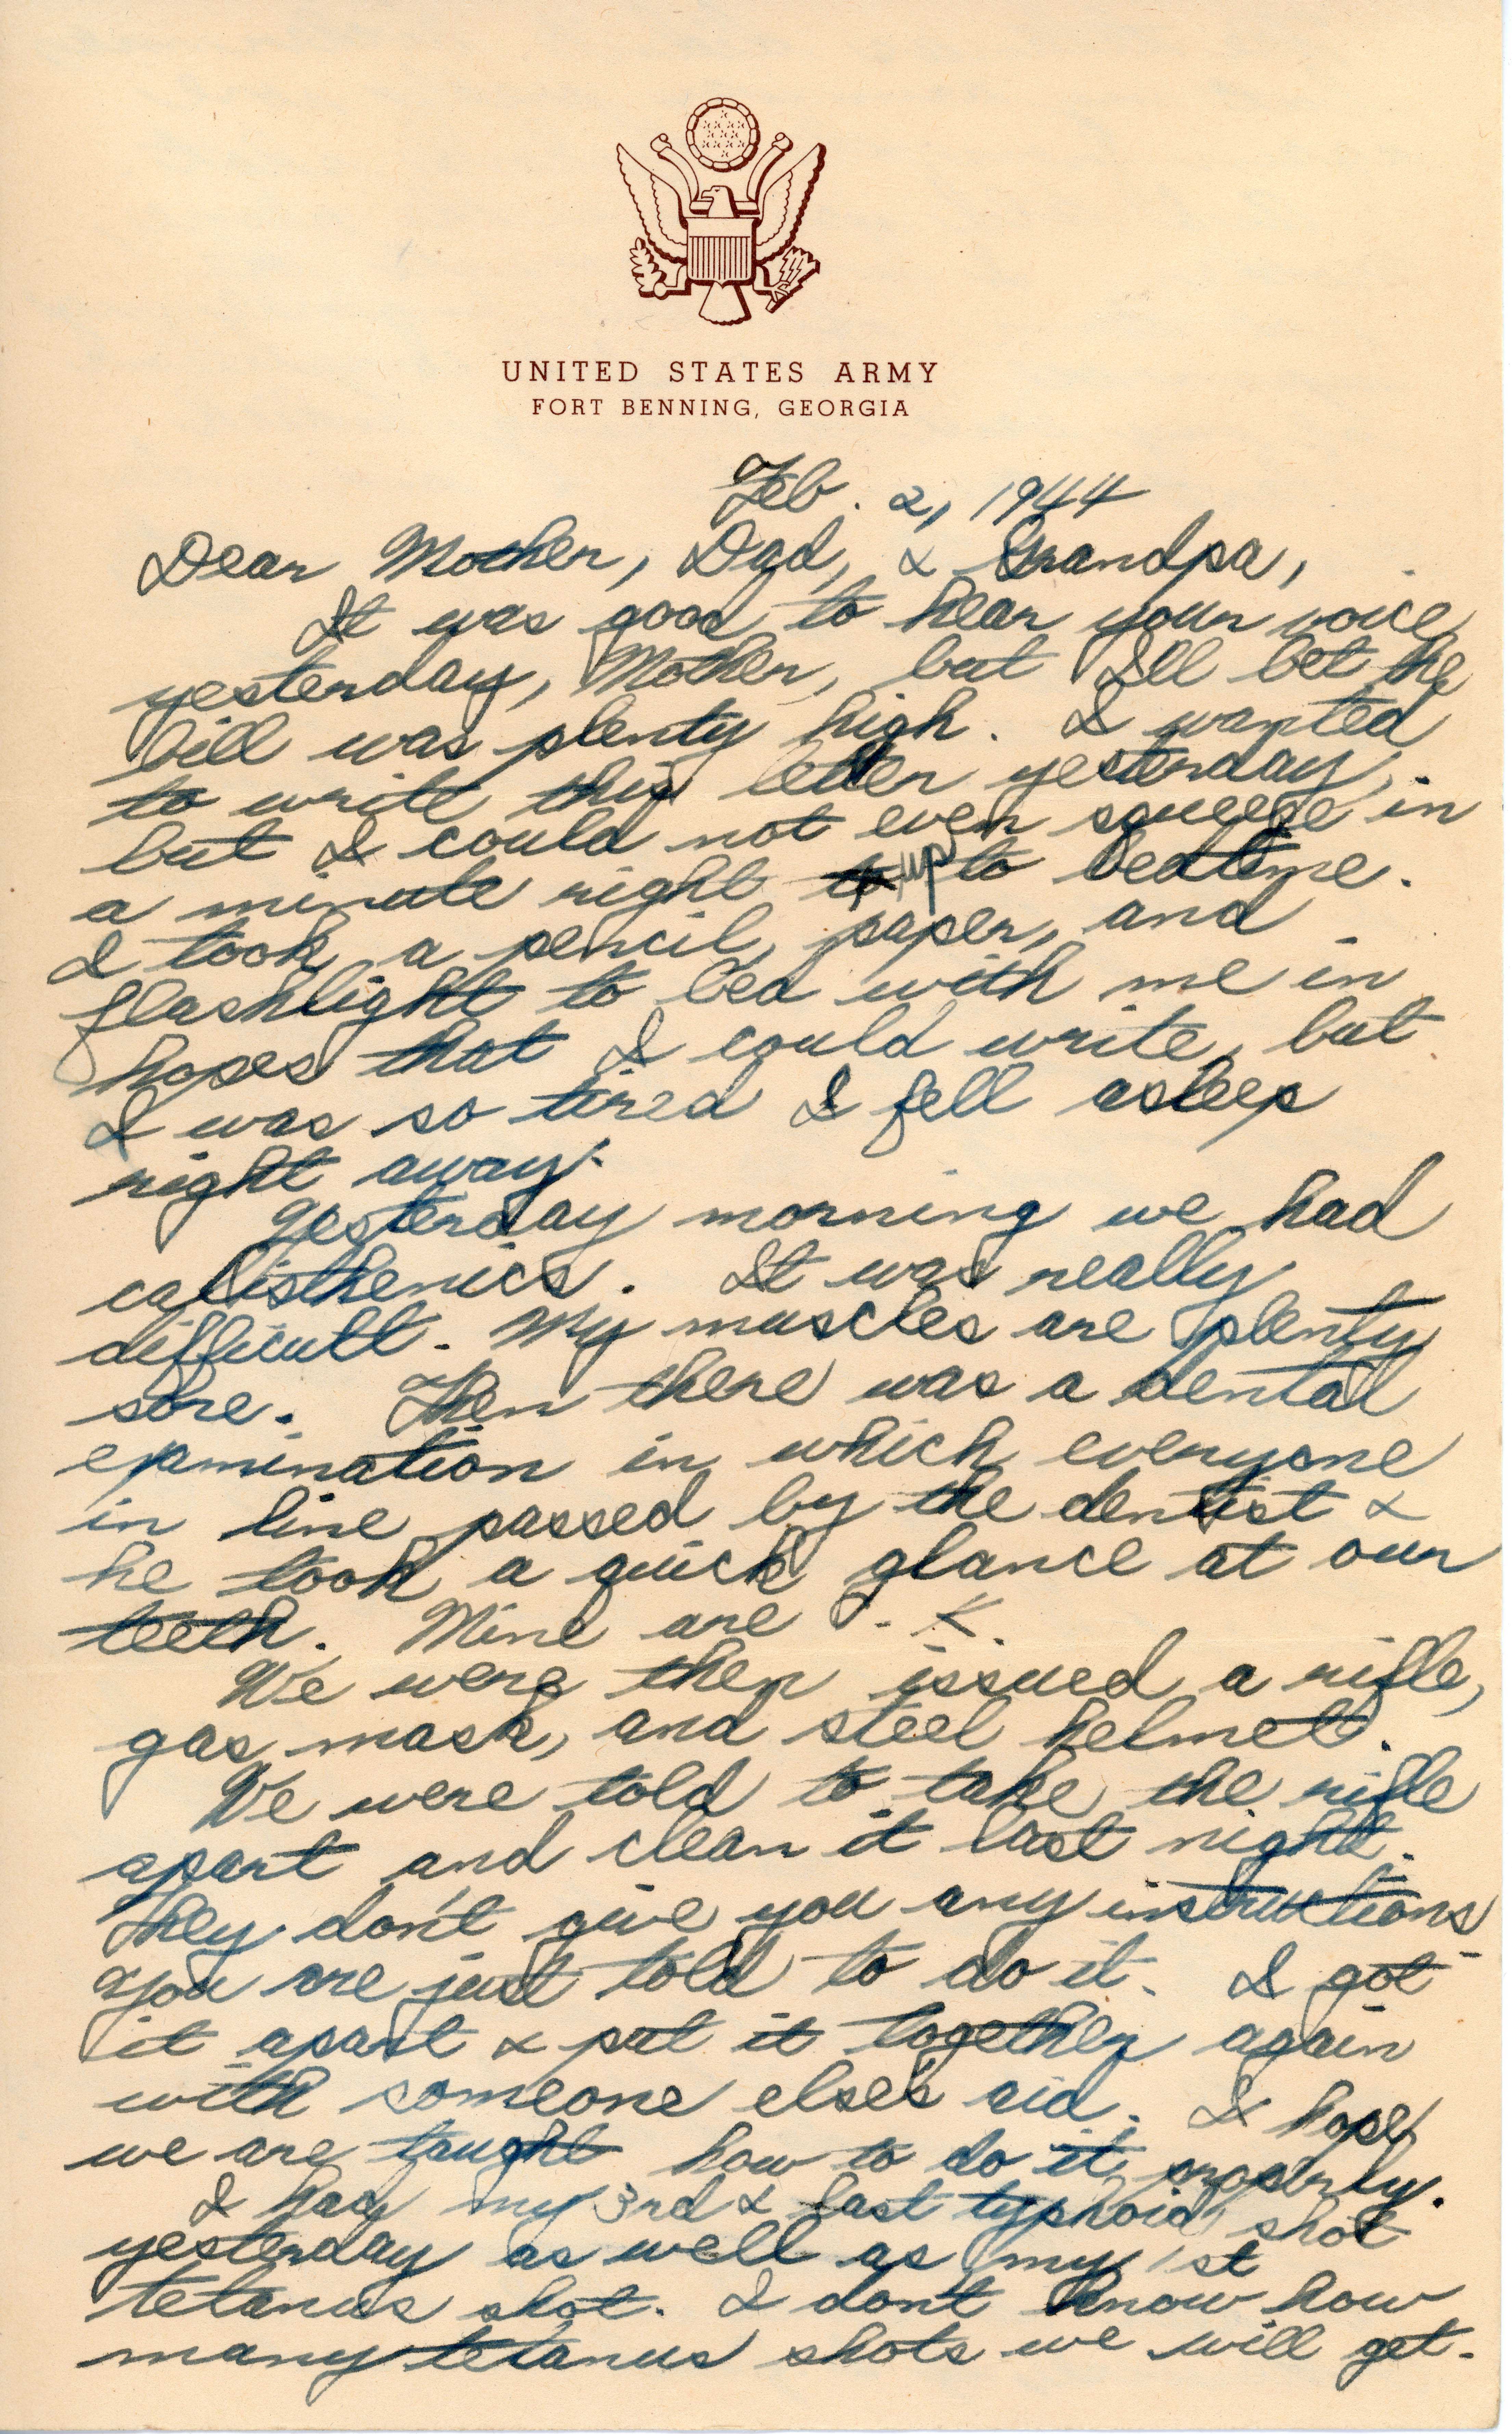 UNITED STATES ARMY
FORT BENNING, GEORGIA
Feb. 2, 1944
Dear Mother, Dad, & Grandpa,
It was good to hear your voice
yesterday, Mother, but I'll bet the
bill was plenty high. I wanted
to write this letter yesterday,
but I could not even squeeze in
a minute right up to bedtime.
I took a pencil, paper, and
flashlight to bed with me in
hopes that I could write, but
I was so tired I fell asleep
right away.
Yesterday morning we had
calisthenics. It was really
difficult. My muscles are plenty
sore. Then there was a dental
examination in which everyone
in line passed by the dentist &
he took a quick glance at our
teeth. Mine are O.K.
We were then issued a rifle,
gas mask, and steel helmet.
We were told to take the rifle
apart and clean it last night.
They don't give you any instructions
you are just told to do it. I got
it apart & put it together again
with someone else's aid. I hope
we are taught how to do it properly.
I had my 3rd & last typhoid shot
yesterday as well as my 1st
tetanus shot. I don't know how
many tetanus shots we will get.